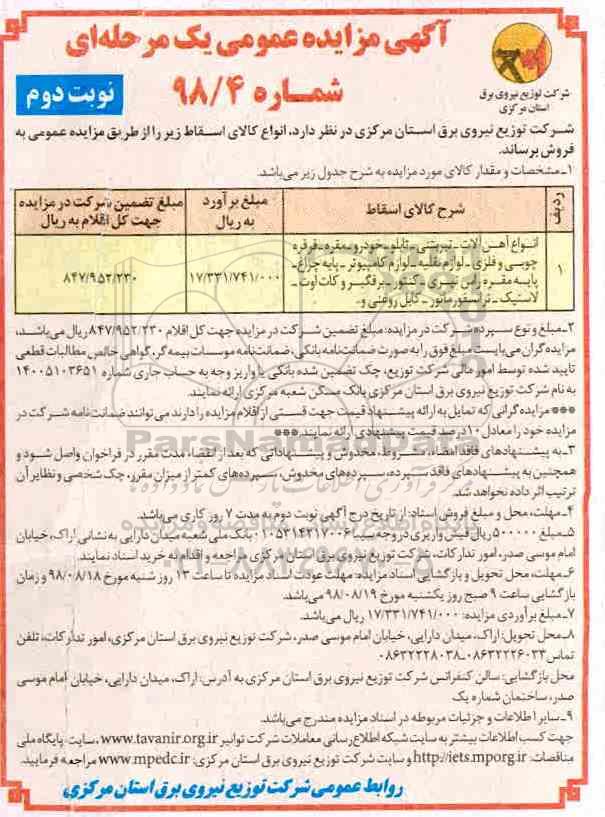 آگهی مزایده عمومی یک مرحله‌ای
شماره ۹۸/۴
نوبت دوم
شرکت توزیع نیروی برق
استان مرکزی
شرکت توزیع نیروی برق استان مرکزی در نظر دارد، انواع کالای اسقاط زیر را از طریق مزایده عمومی به
فروش برساند.
۱ـ مشخصات و مقدار کالای مورد مزایده به شرح جدول زیر می‌باشد.
ردیف
شرح کالای اسقاط
مبلغ برآورد
به ریال
مبلغ تضمین شرکت در مزایده
جهت کل اقلام به ریال
۱
انواع آهن آلات ـ تیر بتنی ـ تابلو ـ خودرو ـ مقره ـ قرقره
چوبی و فلزی ـ لوازم نقلیه ـ لوازم کامپیوتر ـ پایه چراغ ـ
پایه مقره راس تیری ـ کنتور ـ برقگیر و کات اوت ـ
لاستیک ـ ترانسفورماتور ـ کابل روغنی و.
۱۷/۳۳۱/۷۴۱/۰۰۰
۸۴۷/۹۵۲/۲۳۰
۲ـ مبلغ و نوع سپرده شرکت در مزایده: مبلغ تضمین شرکت در مزایده جهت کل اقلام ۸۴۷/۹۵۲/۲۳۰ ریال می‌باشد،
مزایده‌گران می‌بایست مبلغ فوق را به صورت ضمانت‌نامه بانکی، ضمانت‌نامه موسسات بیمه‌گر، گواهی خالص مطالبات قطعی
تایید شده توسط امور مالی شرکت توزیع، چک تضمین شده بانکی یا واریز وجه به حساب جاری شماره ۱۴۰۰۵۱۰۳۶۵۱
به نام شرکت توزیع نیروی برق استان مرکزی بانک مسکن شعبه مرکزی ارائه نمایند.
*** مزایده‌گرانی که تمایل به ارائه پیشنهاد قیمت جهت قسمتی از اقلام مزایده را دارند می‌توانند ضمانت‌نامه شرکت در
مزایده خود را معادل ۱۰ درصد قیمت پیشنهادی ارائه نمایند.***
۳ـ به پیشنهادهای فاقد امضاء، مشروط، مخدوش و پیشنهاداتی که بعد از انقضاء مدت مقرر در فراخوان واصل شود و
همچنین به پیشنهادهای فاقد سپرده، سپرده‌های مخدوش، سپرده‌های کمتر از میزان مقرر، چک شخصی و نظایر آن
ترتیب اثر داده نخواهد شد.
۴ـ مهلت، محل و مبلغ فروش اسناد: از تاریخ درج آگهی نوبت دوم به مدت ۷ روز کاری می‌باشد.
۵ـ مبلغ ۵۰۰۰۰۰ ریال فیش واریزی در وجه سیبا ۰۱۰۵۳۱۴۲۱۷۰۰۶ بانک ملی شعبه میدان دارایی به نشانی اراک، خیابان
امام موسی صدر، امور تدارکات، شرکت توزیع نیروی برق استان مرکزی مراجعه و اقدام به خرید اسناد نمایند.
۶ـ مهلت، محل تحویل و بازگشایی اسناد مزایده: مهلت عودت اسناد مزایده تا ساعت ۱۳ روز شنبه مورخ ۹۸/۰۸/۱۸ و زمان
بازگشایی ساعت ۹ صبح روز یکشنبه مورخ ۹۸/۰۸/۱۹ می‌باشد.
۷ـ مبلغ برآوردی مزایده: ۱۷/۳۳۱/۷۴۱/۰۰۰ ریال می‌باشد.
۸ـ محل تحویل: اراک، میدان دارایی، خیابان امام موسی صدر، شرکت توزیع نیروی برق استان مرکزی، امور تدارکات، تلفن
تماس ۰۸۶۳۲۲۲۶۰۳۳ ـ ۰۸۶۳۲۲۲۸۰۳۸
محل بازگشایی: سالن کنفرانس شرکت توزیع نیروی برق استان مرکزی به آدرس: اراک، میدان دارایی، خیابان امام موسی
صدر، ساختمان شماره یک
۹ـ سایر اطلاعات و جزئیات مربوطه در اسناد مزایده مندرج می‌باشد.
جهت کسب اطلاعات بیشتر به سایت شبکه اطلاع‌رسانی معاملات شرکت توانیر www.tavanir.org.ir، سایت پایگاه ملی
مناقصات: http://iets.mporg.ir و سایت شرکت توزیع نیروی برق استان مرکزی: www.mpedc.ir مراجعه فرمایید.
روابط عمومی شرکت توزیع نیروی برق استان مرکزی
ParsNamadData